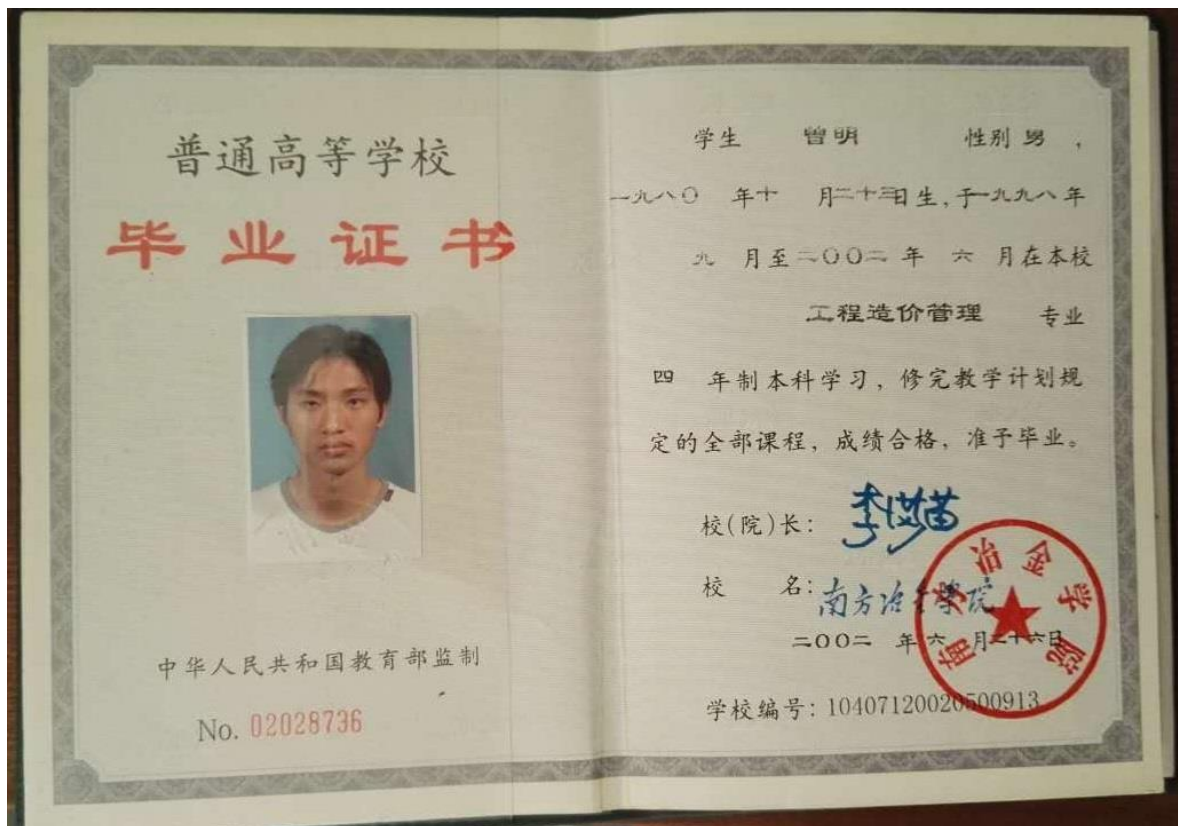 普通高等学校
毕业证书
中华人民共和国教育部监制
No. 02028736
学生 曾明 性别 男，
一九八〇 年十 月二十三日生，于一九九八年
九 月至二〇〇二 年 六 月在本校
工程造价管理 专业
四 年制本科学习，修完教学计划规
定的全部课程，成绩合格，准予毕业。
校(院)长：
校 名：南方冶金学院
二〇〇二 年六 月二十六日
南方冶金学院
学校编号：10407120020500913